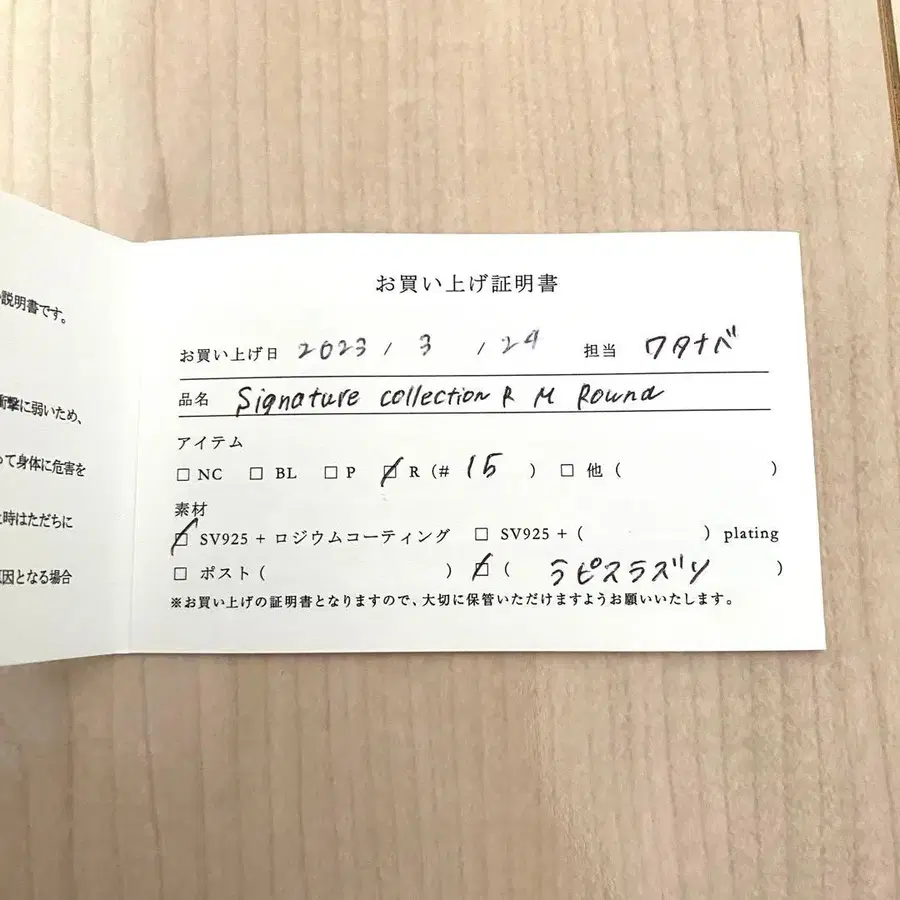 説明書です。
衝撃に弱いため、
って身体に危害を
時はただちに
原因となる場合
お買い上げ証明書
お買い上げ日 2023 / 3 / 24 担当 ワタナベ
品名 Signature collection R M Round
アイテム
□ NC □ BL □ P ☑ R (# 15 ) □ 他 ( )
素材
☑ SV925 + ロジウムコーティング □ SV925 + ( ) plating
□ ポスト ( ) ☑ ( ラピスラズリ )
※お買い上げの証明書となりますので、大切に保管いただけますようお願いいたします。